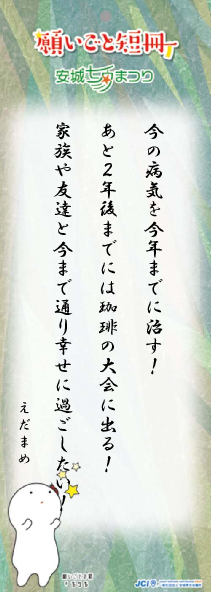 願いごと短冊
安城七夕まつり
今の病気を今年までに治す！
あと２年後までには珈琲の大会に出る！
家族や友達と今まで通り幸せに過ごしたい！
えだまめ
JCI